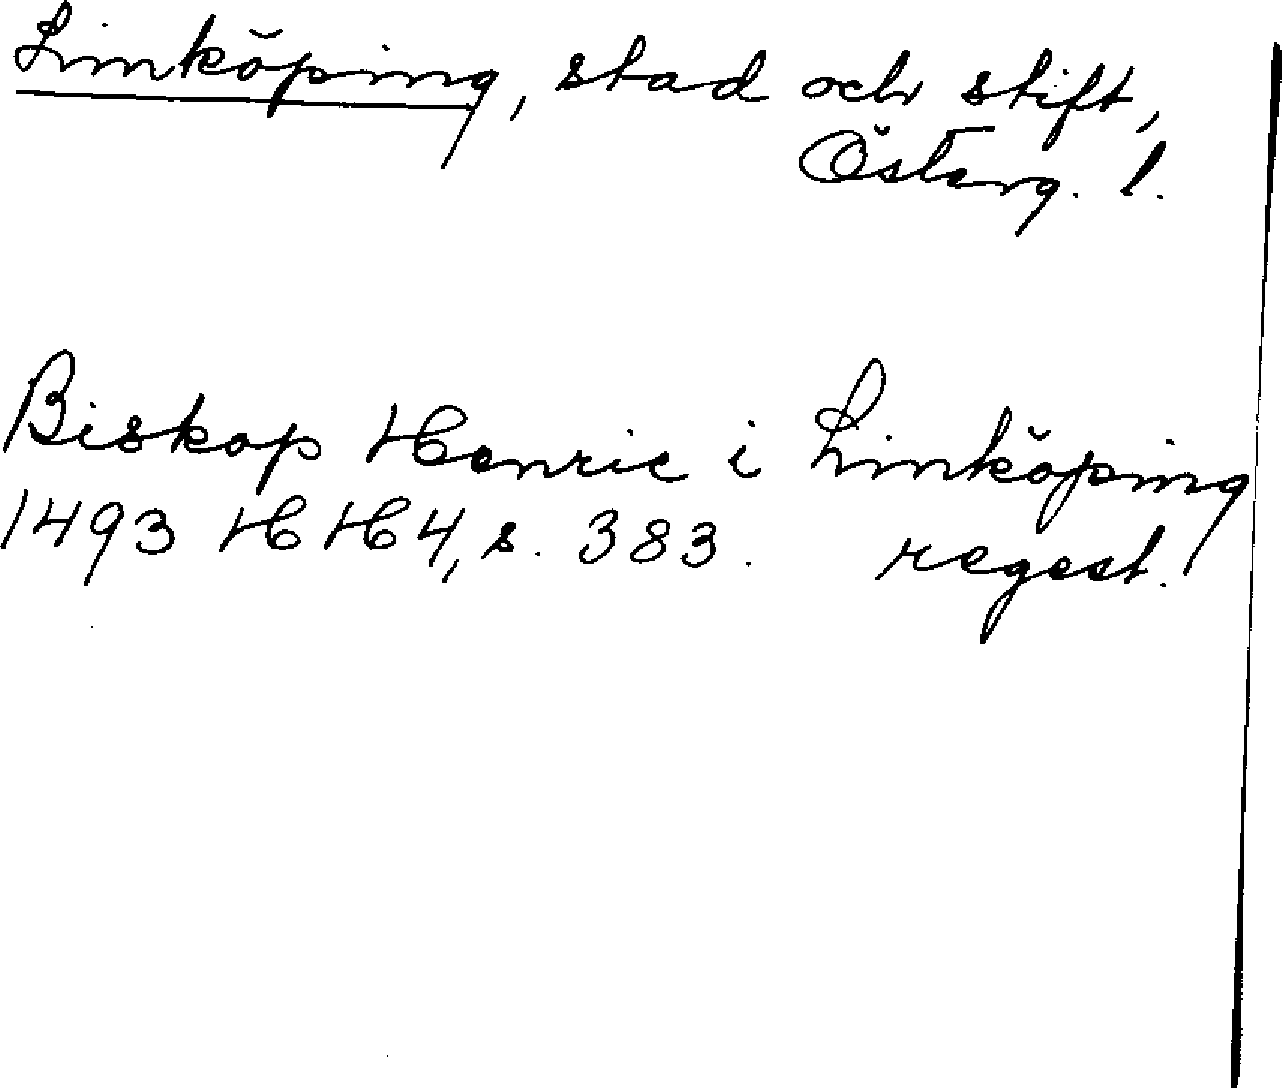 Linköping, stad och stift,
Österg. l.
Biskop Henric i Linköping
1493 HH4, s. 383. regest.